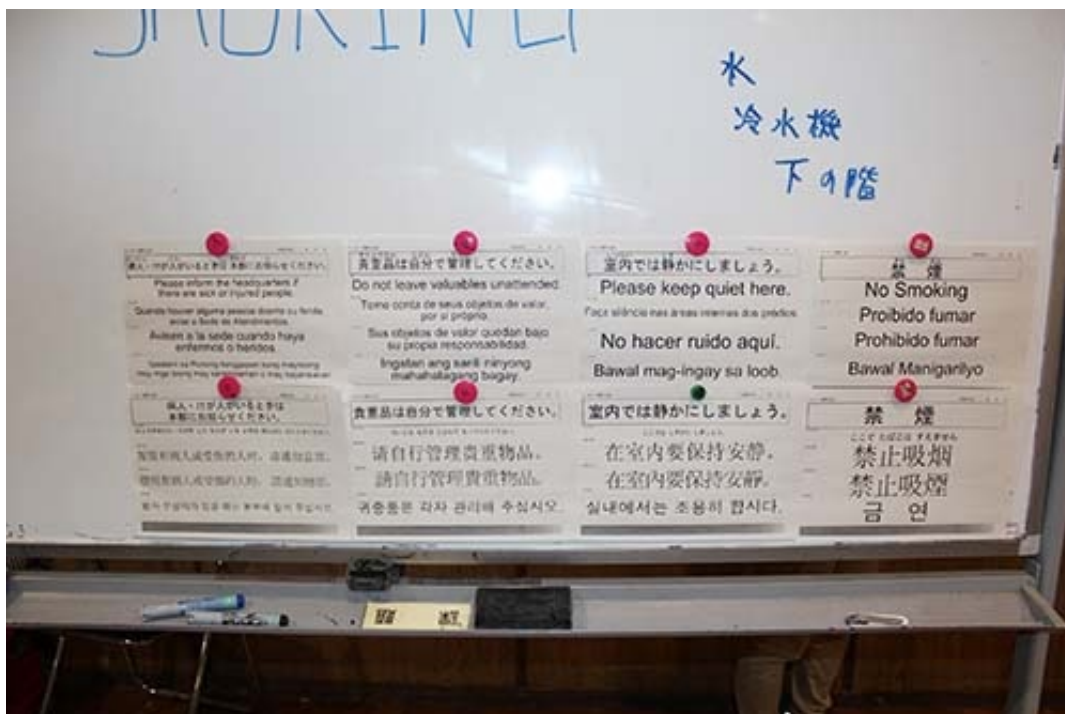 SMOKING
水
冷水機
下の階
病人・けが人がいるときは本部にお知らせください。
Please inform the headquarters if
there are sick or injured people.
Quando houver alguma pessoa doente ou ferida,
avise a Sede de Atendimentos.
Avisen a la sede cuando haya
enfermos o heridos.
貴重品は自分で管理してください。
Do not leave valuables unattended.
Tome conta de seus objetos de valor,
por si próprio.
Sus objetos de valor quedan bajo
su propia responsabilidad.
Ingatan ang sarili ninyong
mahahalagang bagay.
室内では静かにしましょう。
Please keep quiet here.
Faça silêncio nas áreas internas dos prédios.
No hacer ruido aquí.
Bawal mag-ingay sa loob.
禁煙
No Smoking
Proibido fumar
Prohibido fumar
Bawal Manigarilyo
病人・けが人がいるときは
本部にお知らせください。
貴重品は自分で管理してください。
请自行管理贵重物品。
請自行管理貴重物品。
귀중품은 각자 관리해 주십시오.
室内では静かにしましょう。
在室内要保持安静。
在室內要保持安靜。
실내에서는 조용히 합시다.
禁煙
ここで たばこは すえません
禁止吸烟
禁止吸煙
금연